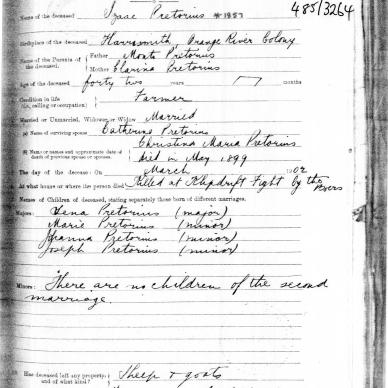 485/3264
Name of the deceased Izaac Pretorius *1857
Birthplace of the deceased Harrismith Orange River Colony
Names of the Parents of the deceased { Father Monts Pretorius
Mother Clarina Pretorius
Age of the deceased forty two years months
Condition in life (viz. calling or occupation) Farmer
Married or Unmarried, Widower or Widow Married
(a) Name of surviving spouse Catherine Pretorius
(b) Name or names and approximate date of death of previous spouse or spouses. Christina Maria Pretorius
died in May 1899
The day of the decease : On March 1902
At what house or where the person died Killed at Klipdrift Fight by the Boers
Names of Children of deceased, stating separately those born of different marriages.
Majors : Lena Pretorius (major)
Marie Pretorius (minor)
Johanna Pretorius (minor)
Joseph Pretorius (minor)
Minors : There are no children of the second
marriage.
Has deceased left any property, and of what kind? Sheep & goats